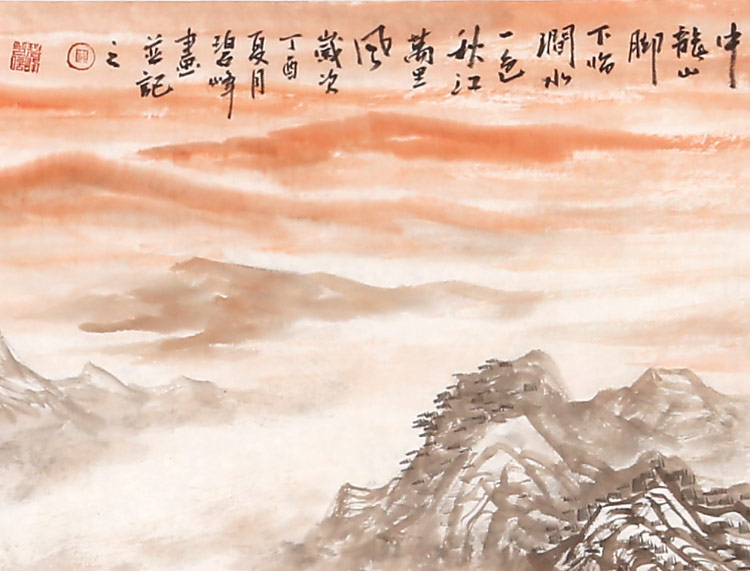 中
龍山
脚
下臨
澗水
一色
秋江
萬里
風
歲次
丁酉
夏月
碧峰
畫
並記
之